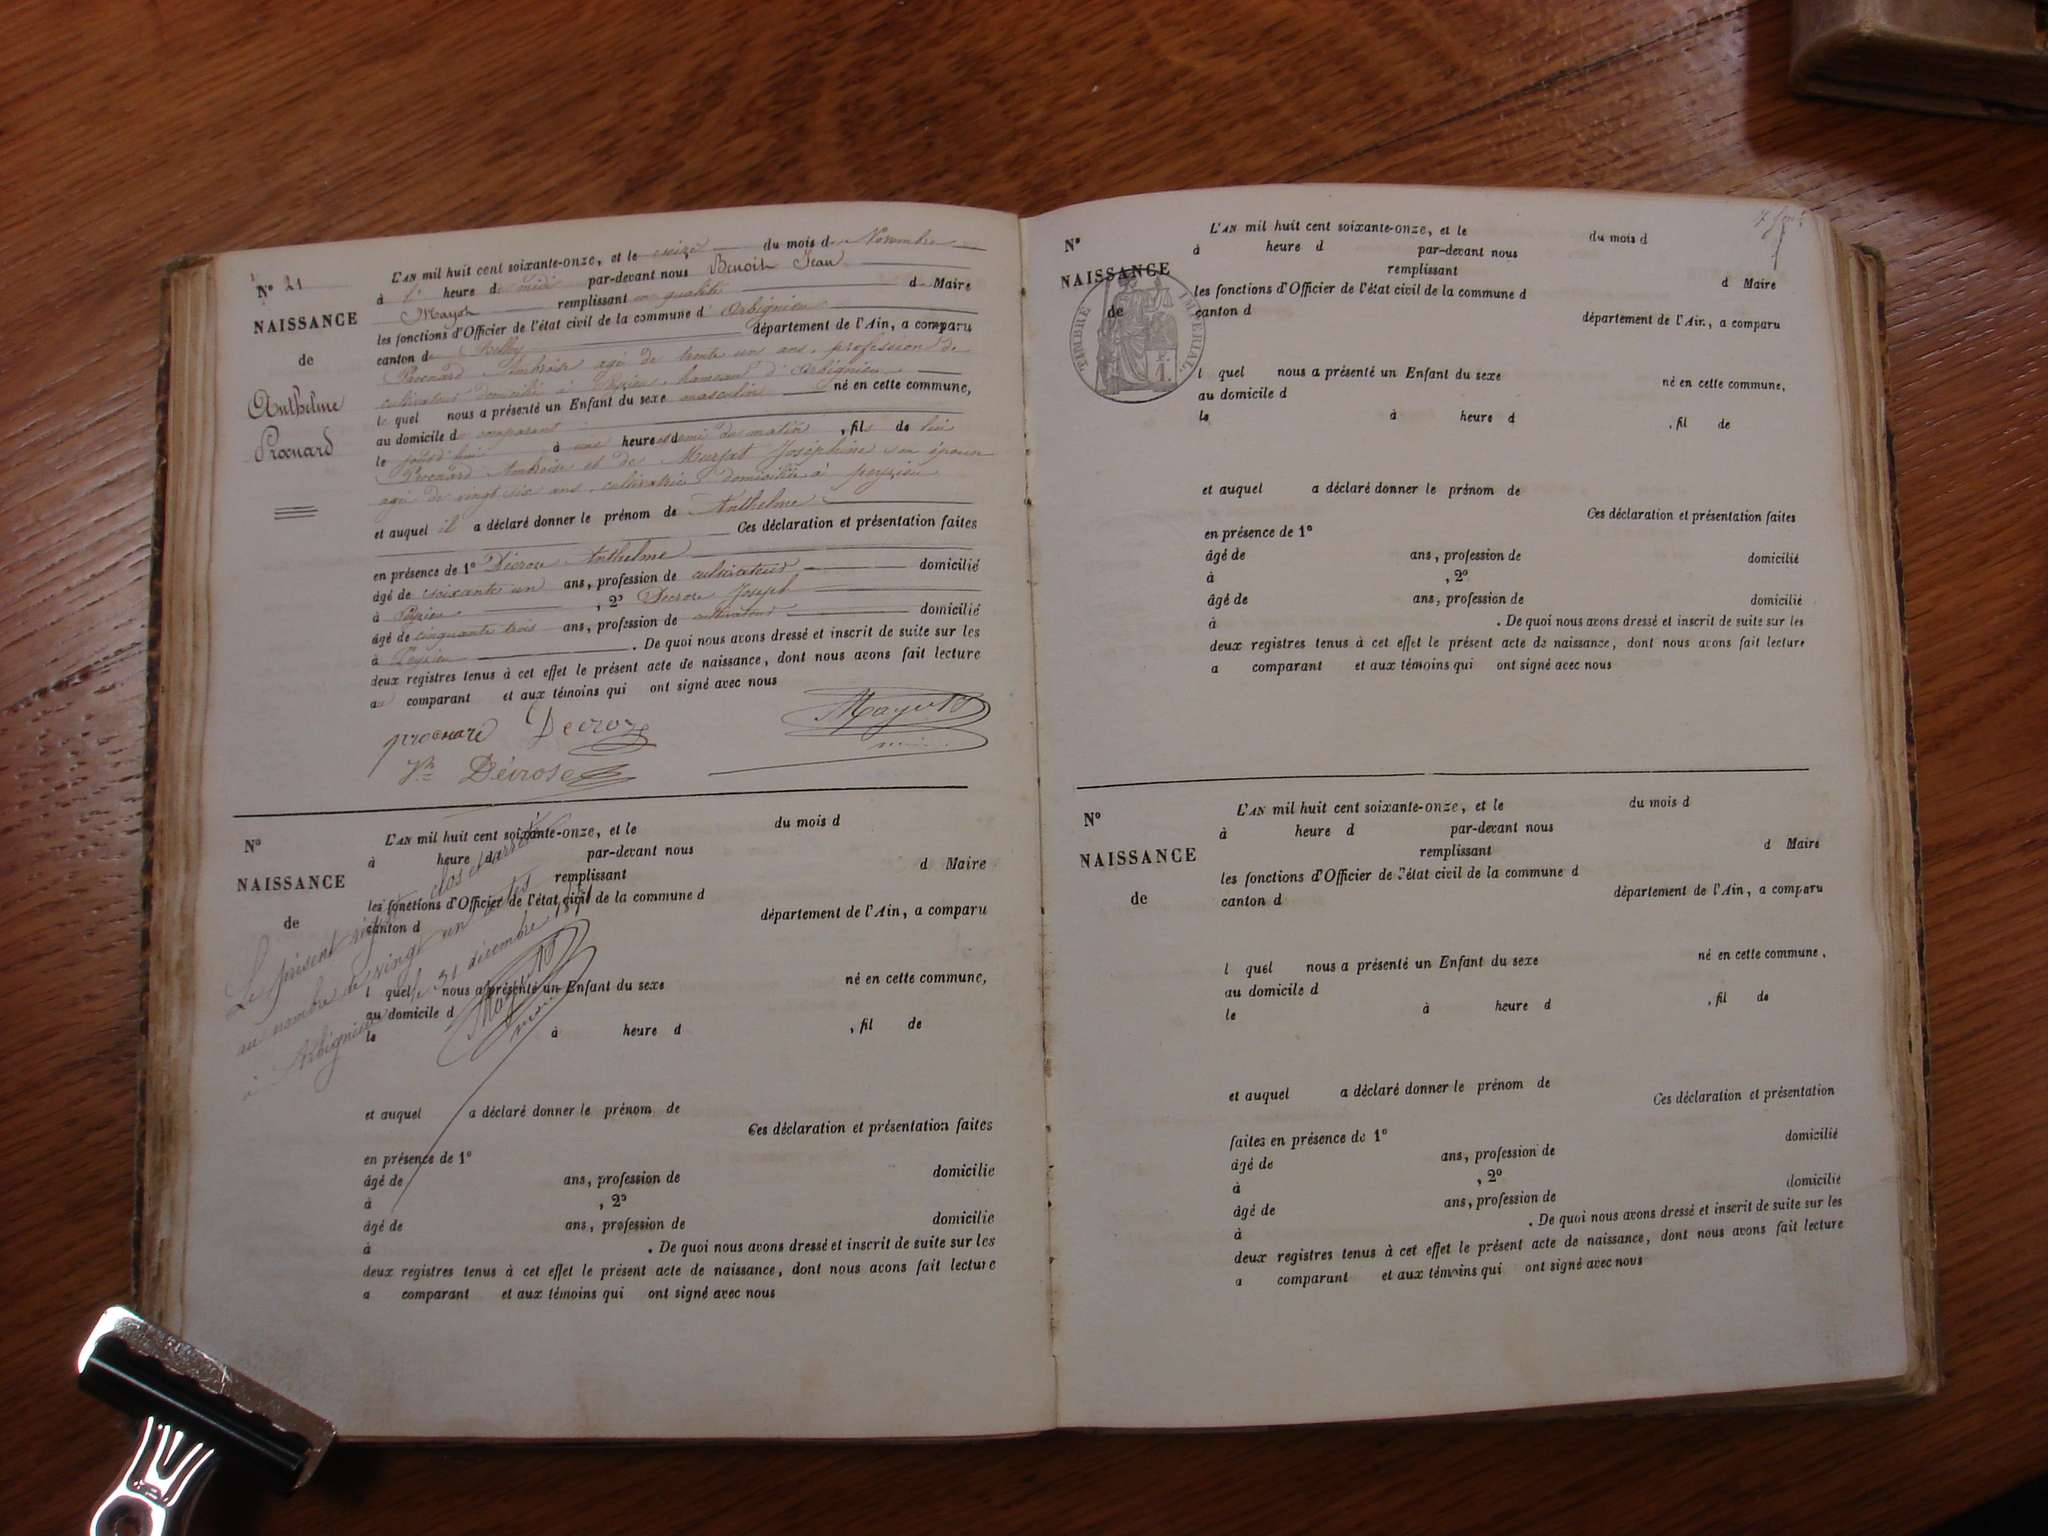 N° 21
NAISSANCE
de
Anthelme
Proenard
L'AN mil huit cent soixante-onze, et le seize du mois de Novembre
à l' heure de midi par-devant nous Benoit Jean
Mayot remplissant en qualité de Maire
les fonctions d'Officier de l'état civil de la commune d'Arbignieu
canton de Belley département de l'Ain, a comparu
Proenard Ambroise agé de trente un ans, profession de
cultivateur domicilié à Peyzieu hameau d'Arbignieu
le quel nous a présenté un Enfant du sexe masculin né en cette commune,
au domicile du comparant
le jourd'hui à une heure demi du matin, fils de lui
Proenard Ambroise et de Murjat Joséphine son épouse
agée de vingt six ans, cultivatrice domiciliée à peyzieu
et auquel il a déclaré donner le prénom de Anthelme
Ces déclaration et présentation faites
en présence de 1° Décroze Anthelme
âgé de soixante un ans, profession de cultivateur domicilié
à Peyzieu, 2° Decroze Joseph
âgé de cinquante trois ans, profession de cultivateur domicilié
à Peyzieu. De quoi nous avons dressé et inscrit de suite sur les
deux registres tenus à cet effet le présent acte de naissance, dont nous avons fait lecture
au comparant et aux témoins qui ont signé avec nous
proenard Decroze Mayot
Jh Décrose
N°
NAISSANCE
de
L'AN mil huit cent soixante-onze, et le du mois d
à heure d par-devant nous
remplissant d Maire
les fonctions d'Officier de l'état civil de la commune d
canton d département de l'Ain, a comparu
l quel nous a présenté un Enfant du sexe né en cette commune,
au domicile d
le à heure d , fil de
et auquel a déclaré donner le prénom de
Ces déclaration et présentation faites
en présence de 1°
âgé de ans, profession de domicilié
à , 2°
âgé de ans, profession de domicilié
à . De quoi nous avons dressé et inscrit de suite sur les
deux registres tenus à cet effet le présent acte de naissance, dont nous avons fait lecture
a comparant et aux témoins qui ont signé avec nous
Le présent registre clos et arrêté
au nombre de vingt un actes
à Arbignieu le 31 décembre 1871
Mayot
maire
N°
NAISSANCE
de
TIMBRE IMPERIAL
L'AN mil huit cent soixante-onze, et le du mois d
à heure d par-devant nous
remplissant d Maire
les fonctions d'Officier de l'état civil de la commune d
canton d département de l'Ain, a comparu
l quel nous a présenté un Enfant du sexe né en cette commune,
au domicile d
le à heure d , fil de
et auquel a déclaré donner le prénom de
Ces déclaration et présentation faites
en présence de 1°
âgé de ans, profession de domicilié
à , 2°
âgé de ans, profession de domicilié
à . De quoi nous avons dressé et inscrit de suite sur les
deux registres tenus à cet effet le présent acte de naissance, dont nous avons fait lecture
a comparant et aux témoins qui ont signé avec nous
N°
NAISSANCE
de
L'AN mil huit cent soixante-onze, et le du mois d
à heure d par-devant nous
remplissant d Maire
les fonctions d'Officier de l'état civil de la commune d
canton d département de l'Ain, a comparu
l quel nous a présenté un Enfant du sexe né en cette commune,
au domicile d
le à heure d , fil de
et auquel a déclaré donner le prénom de
Ces déclaration et présentation
faites en présence de 1° domicilié
âgé de ans, profession de
à , 2° domicilié
âgé de ans, profession de
à . De quoi nous avons dressé et inscrit de suite sur les
deux registres tenus à cet effet le présent acte de naissance, dont nous avons fait lecture
a comparant et aux témoins qui ont signé avec nous